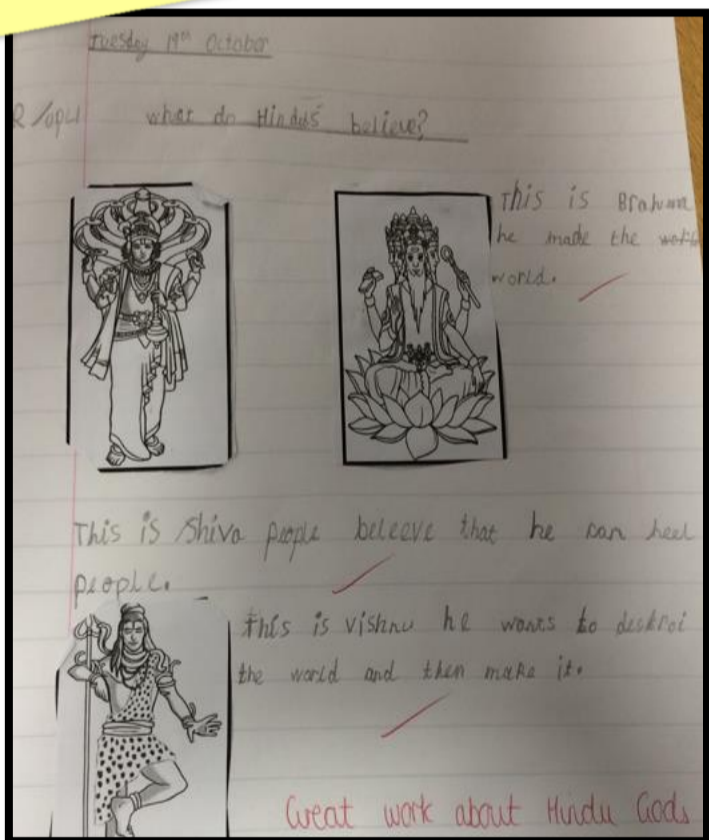 Tuesday 19th October
what do Hindus believe?
This is Brahma
he made the
world.
This is Shiva people beleeve that he can heel
people.
this is vishnu he wants to destroi
the world and then make it.
Great work about Hindu Gods